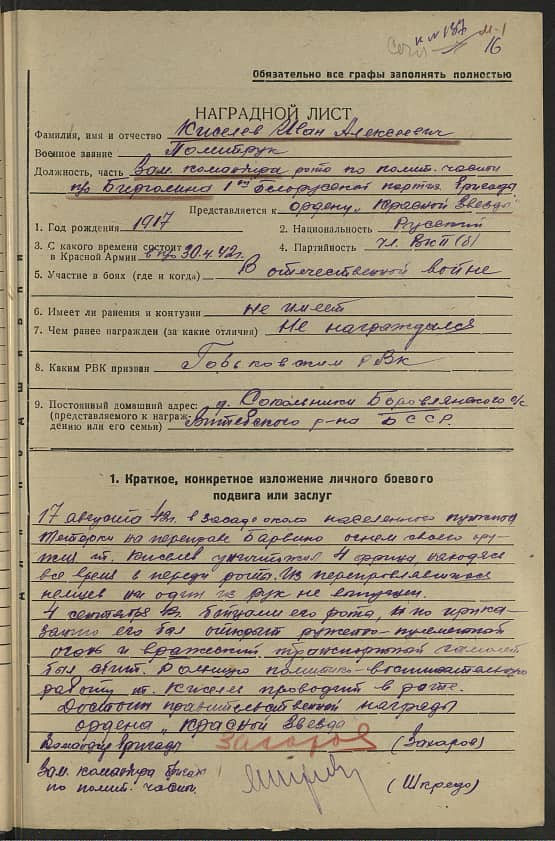 к №157 м-1
16
Обязательно все графы заполнять полностью
НАГРАДНОЙ ЛИСТ
Фамилия, имя и отчество Киселев Иван Алексеевич
Военное звание Политрук
Должность, часть Зам. командира роты по полит. части
п/о Бирюлина 1ой Белорусской партиз. бригада
Представляется к ордену „Красной Звезды"
1. Год рождения 1917 2. Национальность Русский
3. С какого времени состоит в Красной Армии в п/о 30.4.42г. 4. Партийность чл. ВКП(б)
5. Участие в боях (где и когда) В отечественной войне
6. Имеет ли ранения и контузии не имеет
7. Чем ранее награжден (за какие отличия) Не награждался
8. Каким РВК призван РВК
9. Постоянный домашний адрес: д. Сокольники Боровлянского с/с
(представляемого к награждению или его семьи) Витебского р-на БССР.
1. Краткое, конкретное изложение личного боевого
подвига или заслуг
17 августа 42г. в засаде около населенного пункта
на переправе Барвино огнем своего ору-
жия т. Киселев уничтожил 4 фрица, находясь
все время впереди роты. Из переправлявшихся
немцев ни один из рук не
4 сентября 42г. его рота, и по прика-
занию его был открыт ружейно-пулеметный
огонь и вражеский транспортный самолет
был сбит. Большую политико-воспитательную
работу т. Киселев проводит в роте.
Достоин правительственной награды
ордена „Красной Звезды"
Командир бригады Захаров (Захаров)
Зам. командира бригады
по полит. части (Шкредо)